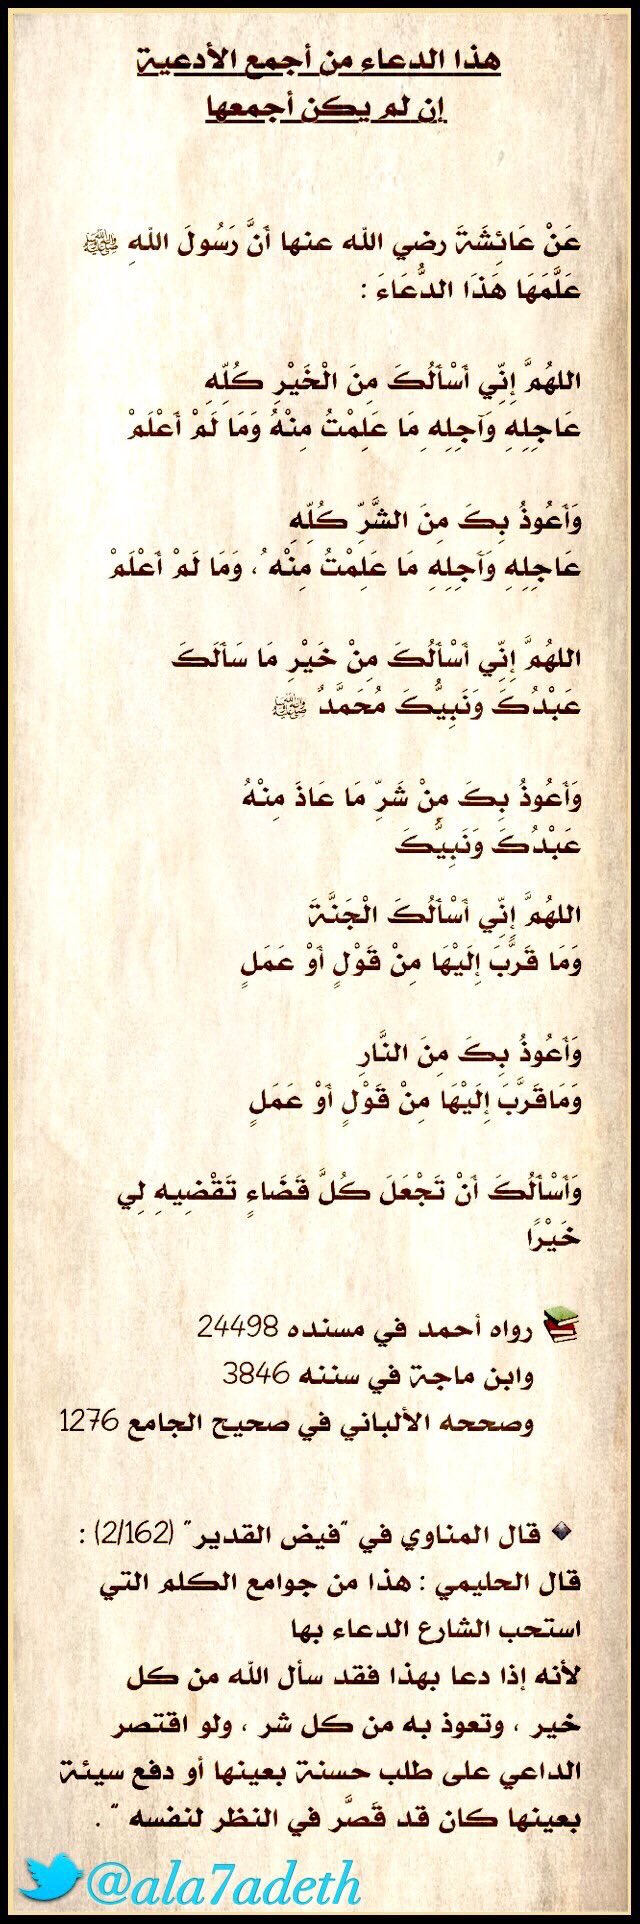 هذا الدعاء من أجمع الأدعية
إن لم يكن أجمعها
عَنْ عَائِشَةَ رضي الله عنها أَنَّ رَسُولَ اللهِ ﷺ
عَلَّمَهَا هَذَا الدُّعَاءَ :
اللهُمَّ إِنِّي أَسْأَلُكَ مِنَ الْخَيْرِ كُلِّهِ
عَاجِلِهِ وَآجِلِهِ مَا عَلِمْتُ مِنْهُ وَمَا لَمْ أَعْلَمْ
وَأَعُوذُ بِكَ مِنَ الشَّرِّ كُلِّهِ
عَاجِلِهِ وَآجِلِهِ مَا عَلِمْتُ مِنْه ُ ، وَمَا لَمْ أَعْلَمْ
اللهُمَّ إِنِّي أَسْأَلُكَ مِنْ خَيْرِ مَا سَأَلَكَ
عَبْدُكَ وَنَبِيُّكَ مُحَمَّدٌ ﷺ
وَأَعُوذُ بِكَ مِنْ شَرِّ مَا عَاذَ مِنْهُ
عَبْدُكَ وَنَبِيُّكَ
اللهُمَّ إِنِّي أَسْأَلُكَ الْجَنَّةَ
وَمَا قَرَّبَ إِلَيْهَا مِنْ قَوْلٍ أَوْ عَمَلٍ
وَأَعُوذُ بِكَ مِنَ النَّارِ
وَمَاقَرَّبَ إِلَيْهَا مِنْ قَوْلٍ أَوْ عَمَلٍ
وَأَسْأَلُكَ أَنْ تَجْعَلَ كُلَّ قَضَاءٍ تَقْضِيهِ لِي
خَيْرًا
رواه أحمد في مسنده 24498
وابن ماجة في سننه 3846
وصححه الألباني في صحيح الجامع 1276
قال المناوي في "فيض القدير" (2/162) :
قال الحليمي : هذا من جوامع الكلم التي
استحب الشارع الدعاء بها
لأنه إذا دعا بهذا فقد سأل الله من كل
خير ، وتعوذ به من كل شر ، ولو اقتصر
الداعي على طلب حسنة بعينها أو دفع سيئة
بعينها كان قد قَصَّر في النظر لنفسه " .
@ala7adeth